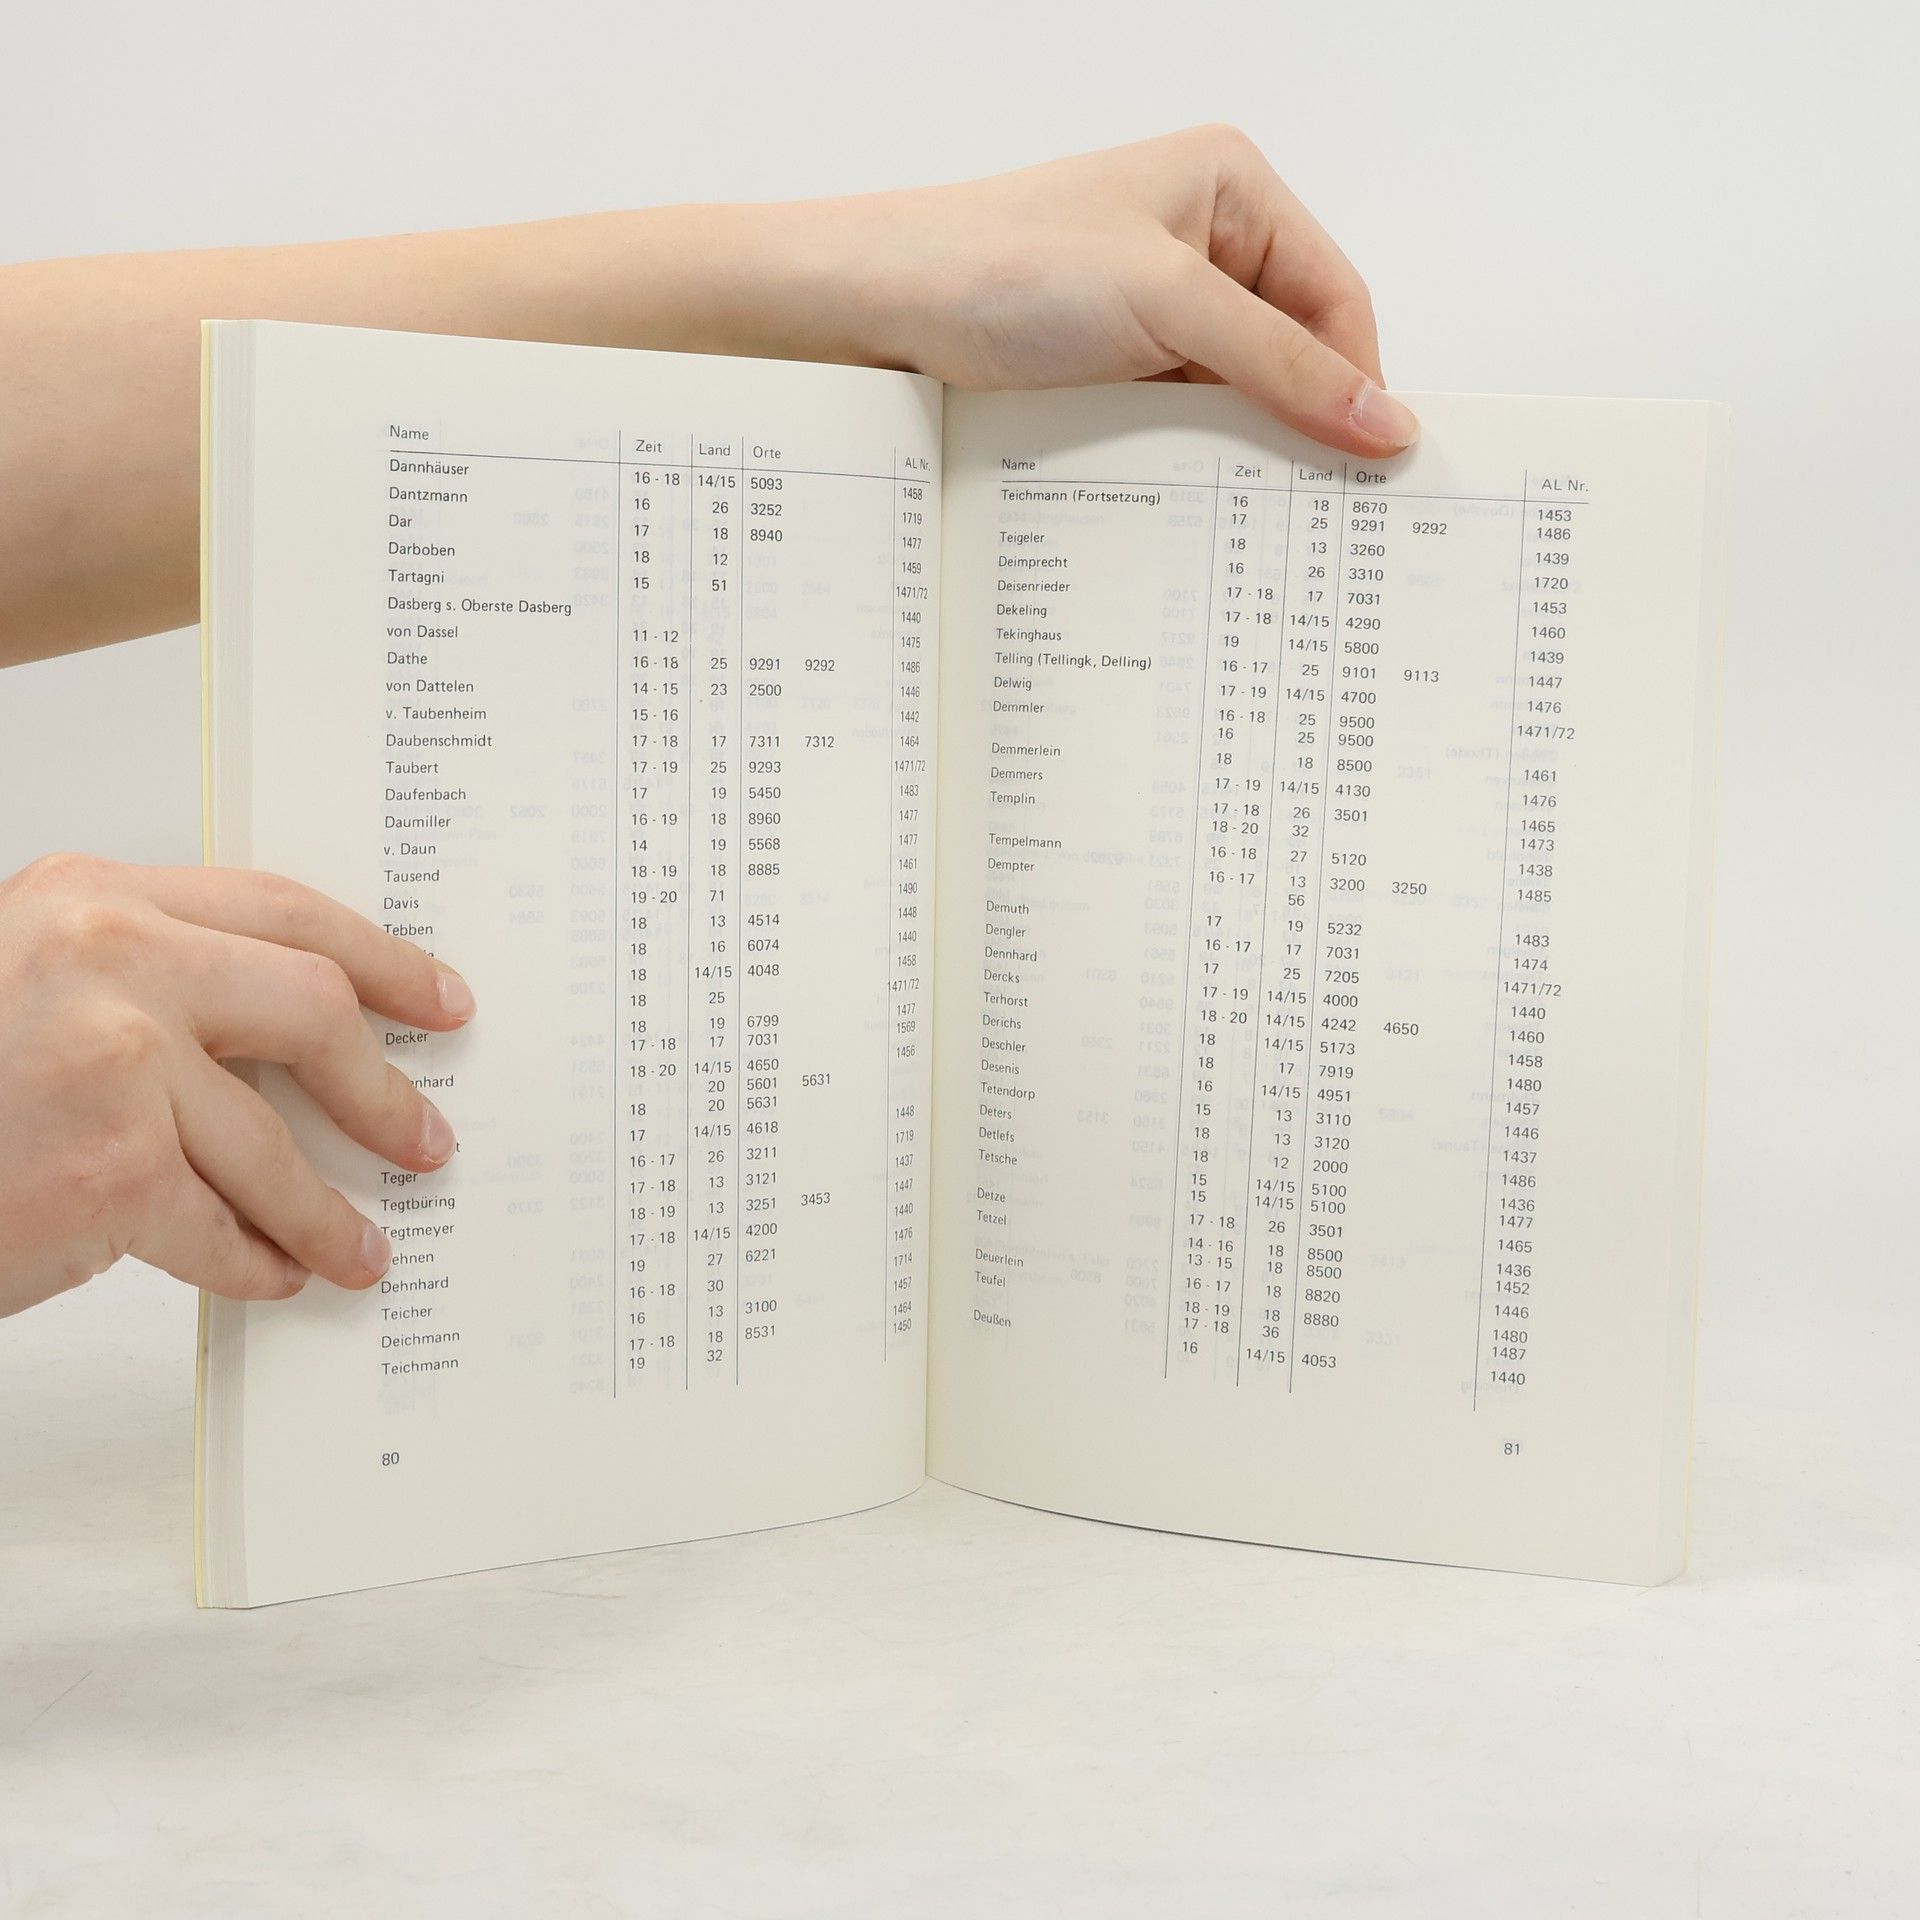 Name Zeit Land Orte AL Nr.
Dannhäuser 16 - 18 14/15 5093 1458
Dantzmann 16 26 3252 1719
Dar 17 18 8940 1477
Darboben 18 12 1459
Tartagni 15 51 1471/72
Dasberg s. Oberste Dasberg 1440
von Dassel 11 - 12 1475
Dathe 16 - 18 25 9291 9292 1486
von Dattelen 14 - 15 23 2500 1446
v. Taubenheim 15 - 16 1442
Daubenschmidt 17 - 18 17 7311 7312 1464
Taubert 17 - 19 25 9293 1471/72
Daufenbach 17 19 5450 1483
Daumiller 16 - 19 18 8960 1477
v. Daun 14 19 5568 1477
Tausend 18 - 19 18 8885 1461
Davis 19 - 20 71 1490
Tebben 18 13 4514 1448
18 16 6074 1440
18 14/15 4048 1458
18 25 1471/72
Decker 18 19 6799 1477
17 - 18 17 7031 1569
nhard 18 - 20 14/15 4650 1456
20 5601 5631
18 20 5631
17 14/15 4618 1448
t 16 - 17 26 3211 1719
Teger 17 - 18 13 3121 1437
Tegtbüring 18 - 19 13 3251 3453 1447
Tegtmeyer 17 - 18 14/15 4200 1440
ehnen 19 27 6221 1476
Dehnhard 16 - 18 30 1714
Teicher 16 13 3100 1457
Deichmann 17 - 18 18 8531 1464
Teichmann 19 32 1450
80
Name Zeit Land Orte AL Nr.
Teichmann (Fortsetzung) 16 18 8670 1453
17 25 9291 9292 1486
Teigeler 18 13 3260 1439
Deimprecht 16 26 3310 1720
Deisenrieder 17 - 18 17 7031 1453
Dekeling 17 - 18 14/15 4290 1460
Tekinghaus 19 14/15 5800 1439
Telling (Tellingk, Delling) 16 - 17 25 9101 9113 1447
Delwig 17 - 19 14/15 4700 1476
Demmler 16 - 18 25 9500 1471/72
16 25 9500
Demmerlein 18 18 8500 1461
Demmers 17 - 19 14/15 4130 1476
Templin 17 - 18 26 3501 1465
18 - 20 32 1473
Tempelmann 16 - 18 27 5120 1438
Dempter 16 - 17 13 3200 3250 1485
56
Demuth 17 19 5232 1483
Dengler 16 - 17 17 7031 1474
Dennhard 17 25 7205 1471/72
Dercks 17 - 19 14/15 4000 1440
Terhorst 18 - 20 14/15 4242 4650 1460
Derichs 18 14/15 5173 1458
Deschler 18 17 7919 1480
Desenis 16 14/15 4951 1457
Tetendorp 15 13 3110 1446
Deters 18 13 3120 1437
Detlefs 18 12 2000 1486
Tetsche 15 14/15 5100 1436
15 14/15 5100 1477
Detze 17 - 18 26 3501 1465
Tetzel 14 - 16 18 8500 1436
13 - 15 18 8500 1452
Deuerlein 16 - 17 18 8820 1446
Teufel 18 - 19 18 8880 1480
17 - 18 36 1487
Deußen 16 14/15 4053 1440
81